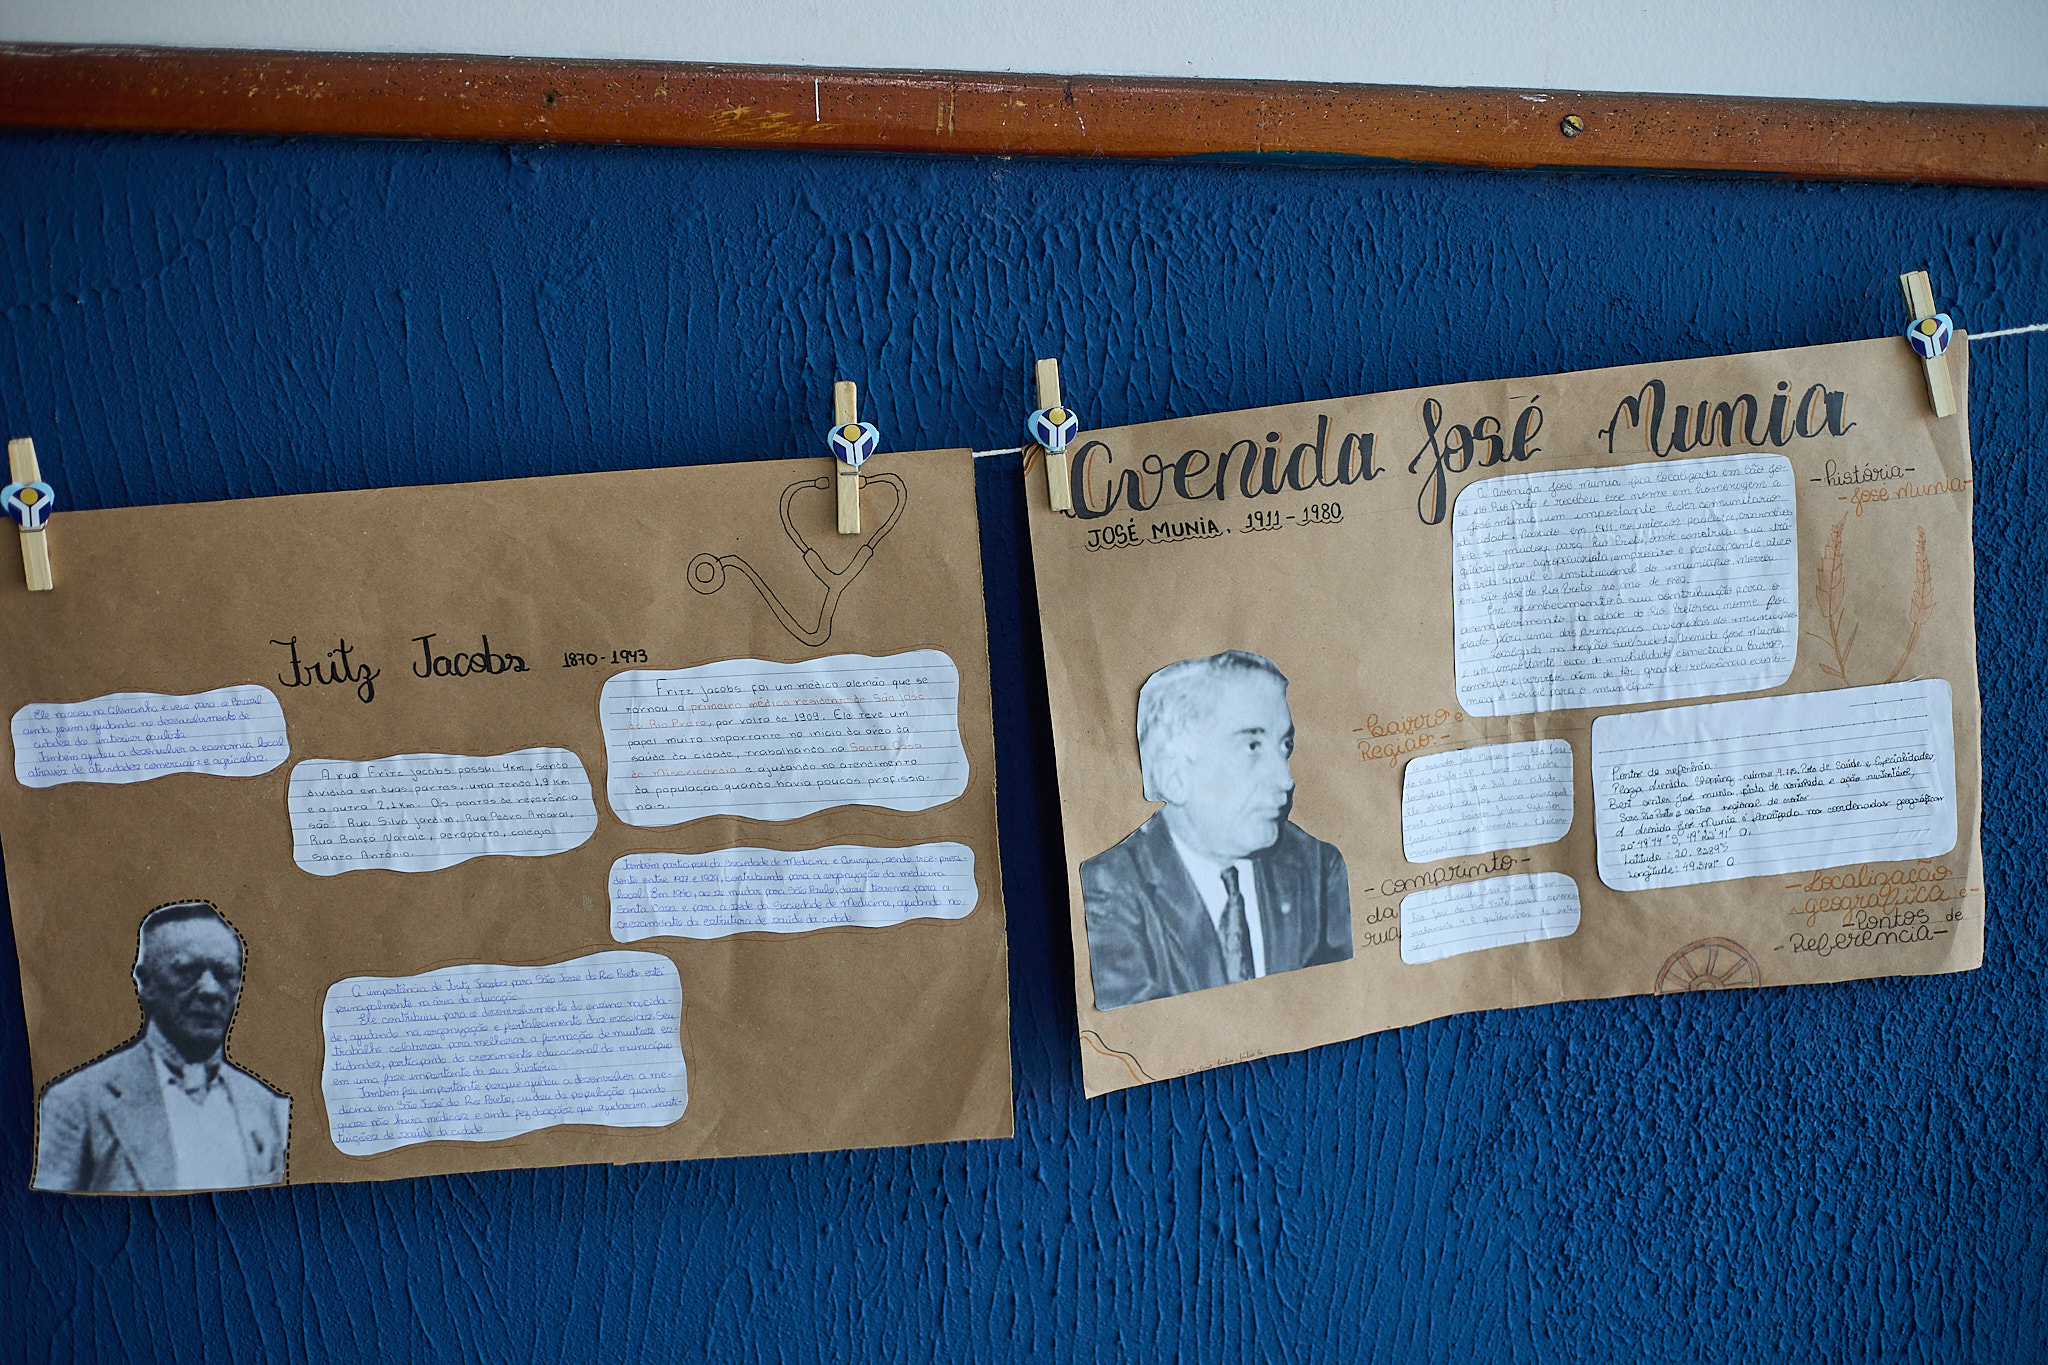 Fritz Jacobs 1870-1943
Ele nasceu na Alemanha e veio para o Brasil
ainda jovem, ajudando no desenvolvimento de
cidades do interior paulista.
Também ajudou a desenvolver a economia local
através de atividades comerciais e agrícolas.
A rua Fritz Jacobs possui 4km, sendo
dividida em duas partes, uma tendo 1,9 km
e a outra 2,1km. Os pontos de referência
são: Rua Silva Jardim, Rua Pedro Amaral,
Rua Bonfá Natale, aeroporto, colégio
Santo Antônio.
Fritz Jacobs foi um médico alemão que se
tornou o primeiro médico residente de São José
do Rio Preto, por volta de 1909. Ele teve um
papel muito importante no início da área da
saúde da cidade, trabalhando na Santa Casa
de Misericórdia e ajudando no atendimento
da população quando havia poucos profissio-
nais.
Também participou da Sociedade de Medicina e Cirurgia, sendo vice-presi-
dente entre 1927 e 1929, contribuindo para a organização da medicina
local. Em 1940, ao se mudar para São Paulo, doou terrenos para a
Santa Casa e para a sede da Sociedade de Medicina, ajudando no
crescimento da estrutura de saúde da cidade.
A importância de Fritz Jacobs para São José do Rio Preto está
principalmente na área da educação.
Ele contribuiu para o desenvolvimento do ensino na cida-
de, ajudando na organização e fortalecimento das escolas. Seu
trabalho colaborou para melhorar a formação de muitos es-
tudantes, participando do crescimento educacional do município
em uma fase importante da sua história.
Também foi importante porque ajudou a desenvolver a me-
dicina em São José do Rio Preto, cuidou da população quando
quase não havia médicos e ainda fez doações que ajudaram insti-
tuições de saúde da cidade.
Avenida José Munia
JOSÉ MUNIA, 1911-1980
-história-
-José Munia-
A Avenida José Munia fica localizada em São Jo-
sé do Rio Preto e recebeu esse nome em homenagem a
José Munia, um importante líder comunitário
da cidade. Nascido em 1911, no interior paulista,
se mudou para Rio Preto, onde construiu sua traje-
tória como agropecuarista, empresário e participante ativo
da vida social e institucional do município. Morreu
em São José do Rio Preto no ano de 1980.
Em reconhecimento à sua contribuição para o
desenvolvimento da cidade de Rio Preto, seu nome foi
dado para uma das principais avenidas do município.
Localizada na região sul/sudeste, Avenida José Munia
é um importante eixo de mobilidade, conectada a bairros,
comércios e serviços além de ter grande relevância econô-
mica e social para o município.
-bairro e
Região-
-comprimto-
da
rua
Pontos de referência
Plaza Avenida Shopping, número 4.775, Polo de Saúde e Especialidades,
Best center José munia, pista de caminhada e
São Rio Preto e centro regional de
A Avenida José Munia é localizada nas coordenadas geográficas
20°49'44"S, 49°23'41" O.
Latitude: 20.8289°S
Longitude: 49.3921° O
-Localização
geográfica e-
-Pontos de
-Referência-